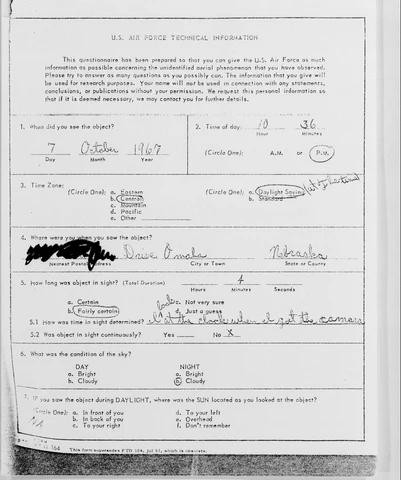 U.S. AIR FORCE TECHNICAL INFORMATION
This questionnaire has been prepared so that you can give the U.S. Air Force as much
information as possible concerning the unidentified aerial phenomenon that you have observed.
Please try to answer as many questions as you possibly can. The information that you give will
be used for research purposes. Your name will not be used in connection with any statements,
conclusions, or publications without your permission. We request this personal information so
that if it is deemed necessary, we may contact you for further details.
1. When did you see the object?
7 October 1967
Day Month Year
2. Time of day: 10 36
Hour Minutes
(Circle One): A.M. or P.M.
3. Time Zone:
(Circle One): a. Eastern
b. Central
c. Mountain
d. Pacific
e. Other
(Circle One): a. Daylight Saving
b. Standard
4. Where were you when you saw the object?
Drive Omaha Nebraska
Nearest Postal Address City or Town State or County
5. How long was object in sight? (Total Duration) 4
Hours Minutes Seconds
a. Certain
b. Fairly certain
c. Not very sure
d. Just a guess
5.1 How was time in sight determined? at the clock when I got the camera
5.2 Was object in sight continuously? Yes No X
6. What was the condition of the sky?
DAY
a. Bright
b. Cloudy
NIGHT
a. Bright
b. Cloudy
7. IF you saw the object during DAYLIGHT, where was the SUN located as you looked at the object?
(Circle One): a. In front of you
b. In back of you
c. To your right
d. To your left
e. Overhead
f. Don't remember
NA
FORM
164
This form supersedes FTD 164, Jul 61, which is obsolete.